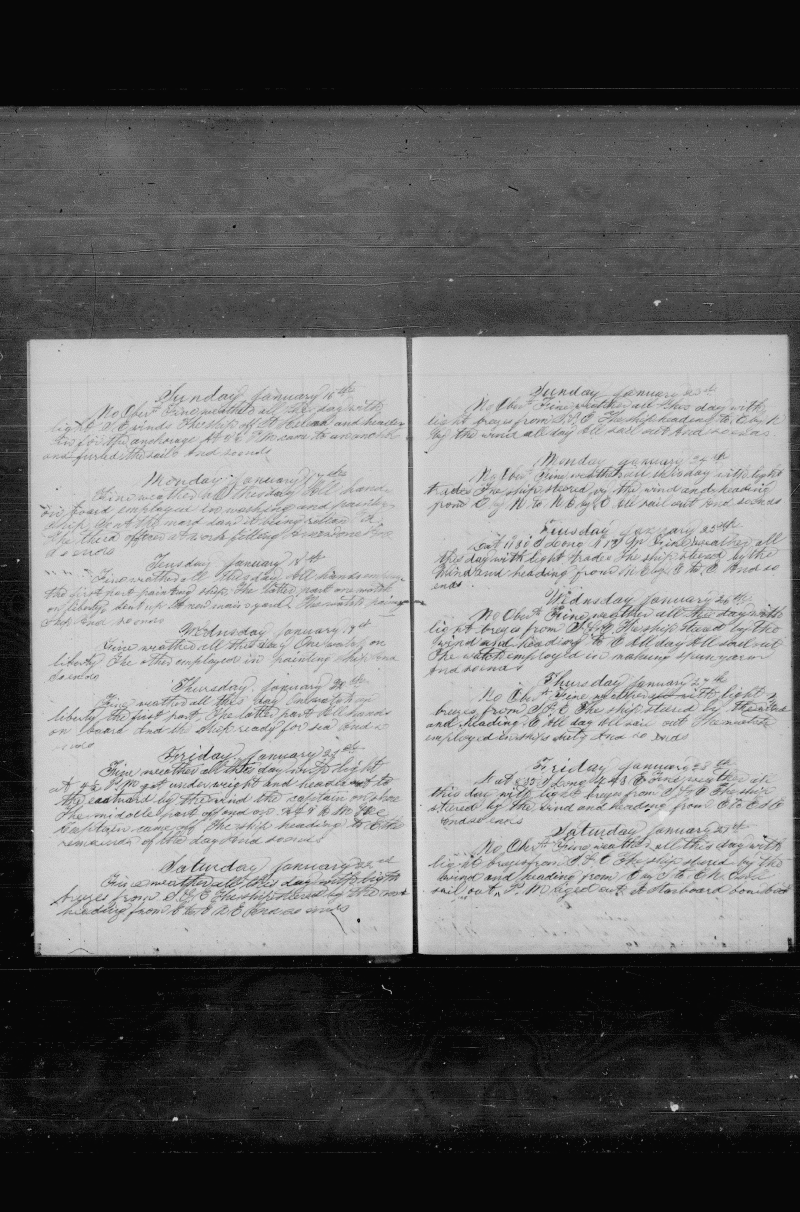 Sunday January 16th
No Obst Fine weather all this day with
light S E winds The ship of St Helena and headen
this for the anchorage At 4 P M came to an anchor
and furled the sails And so ends
Monday January 17ths
Fine weather all theis day All hands
on board employed in washing and painting
ship
The third officer at work filling
ds ends
Teusday January 18th
Fine weather all theis day All hands employed
the first part painting ship The latter part one watch
on liberty Sent up a new main yard The mate
sick And so ends
Wednsday January 19th
Fine weather all this day One watch on
liberty The other employed in painting ship And
so ends
Thursday January 20th
Fine weather all this day One watch on
liberty the first part The latter part All hands
on board and the ship ready for sea And s
ends
Friday January 21st
Fine weather all this day with light
at P M got underweight and headed to
the eastward by the wind the captain on shore
The middle part of and on At 9 A M the
captain came off The ship heading to E the
remainder of the day And so ends
Saturday January 22nd
Fine weather all this day with light
breyes from S & E The ship stered by the wind
heading from E to N E And so ends
Sunday January 23rd
No Obst Fine weather all this day with
light breyes from S & E The ship heading to E by N
by the wind all day All sail out And so ends
Monday January 24th
No Obst Fine weather all this day with light
trades The ship stered by the wind and heading
from E by N to N E by E All sail out And so ends
Teusday January 25th
Lat S Long W Fine weather all
this day with light trades The ship stered by the
wind and heading from N E by E to E And so
ends
Wednsday January 26th
No Obst Fine weather all this day with
light breyes from S & E The ship steard by the
wind and heading to E all day All sail out
The watch employed in making spunyarn
And so ends
Thursday January 27th
No Obst Fine weather with light
breyes from S & E The ship stared by the wind
and heading E all day All sail out The watch
employed in ships duty And so ends
Friday January 28th
Lat S Long W Fine weather all
this day with light breyes from S & E The ship
stered by the wind and heading from E to E S E
And so ends
Saturday January 29th
No Obst Fine weather all this day with
light breyes from S & E The ship stered by the
wind and heading from E by S to E N E All
sail out P M out A Starboard bow boat